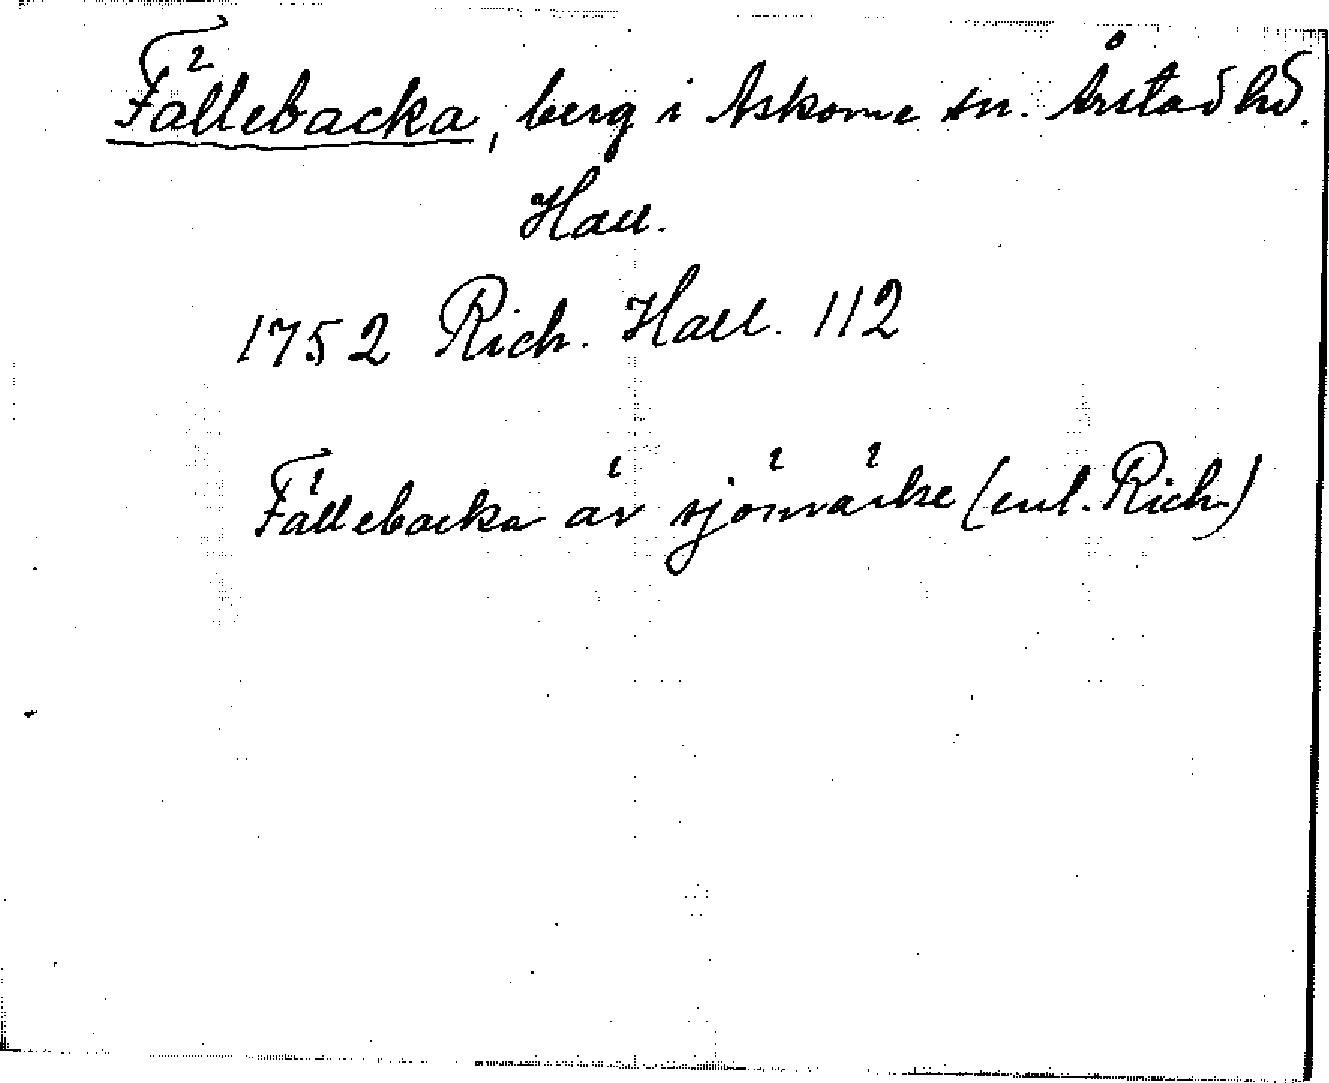 Fällebacka, berg i Askome sn. Årstad hd.
Hall.
1752 Rich. Hall. 112
Fällebacka är sjömärke (enl. Rich.)